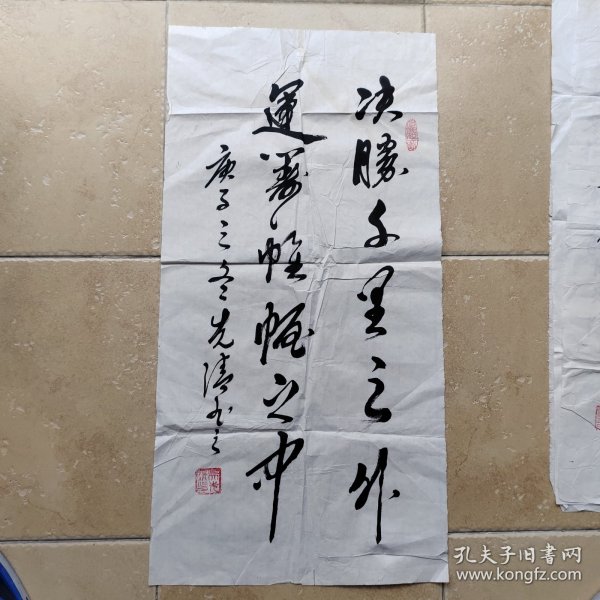 决勝千里之外
運籌帷幄之中
庚子之冬先清书之
孔夫子旧书网
www.kongfz.com